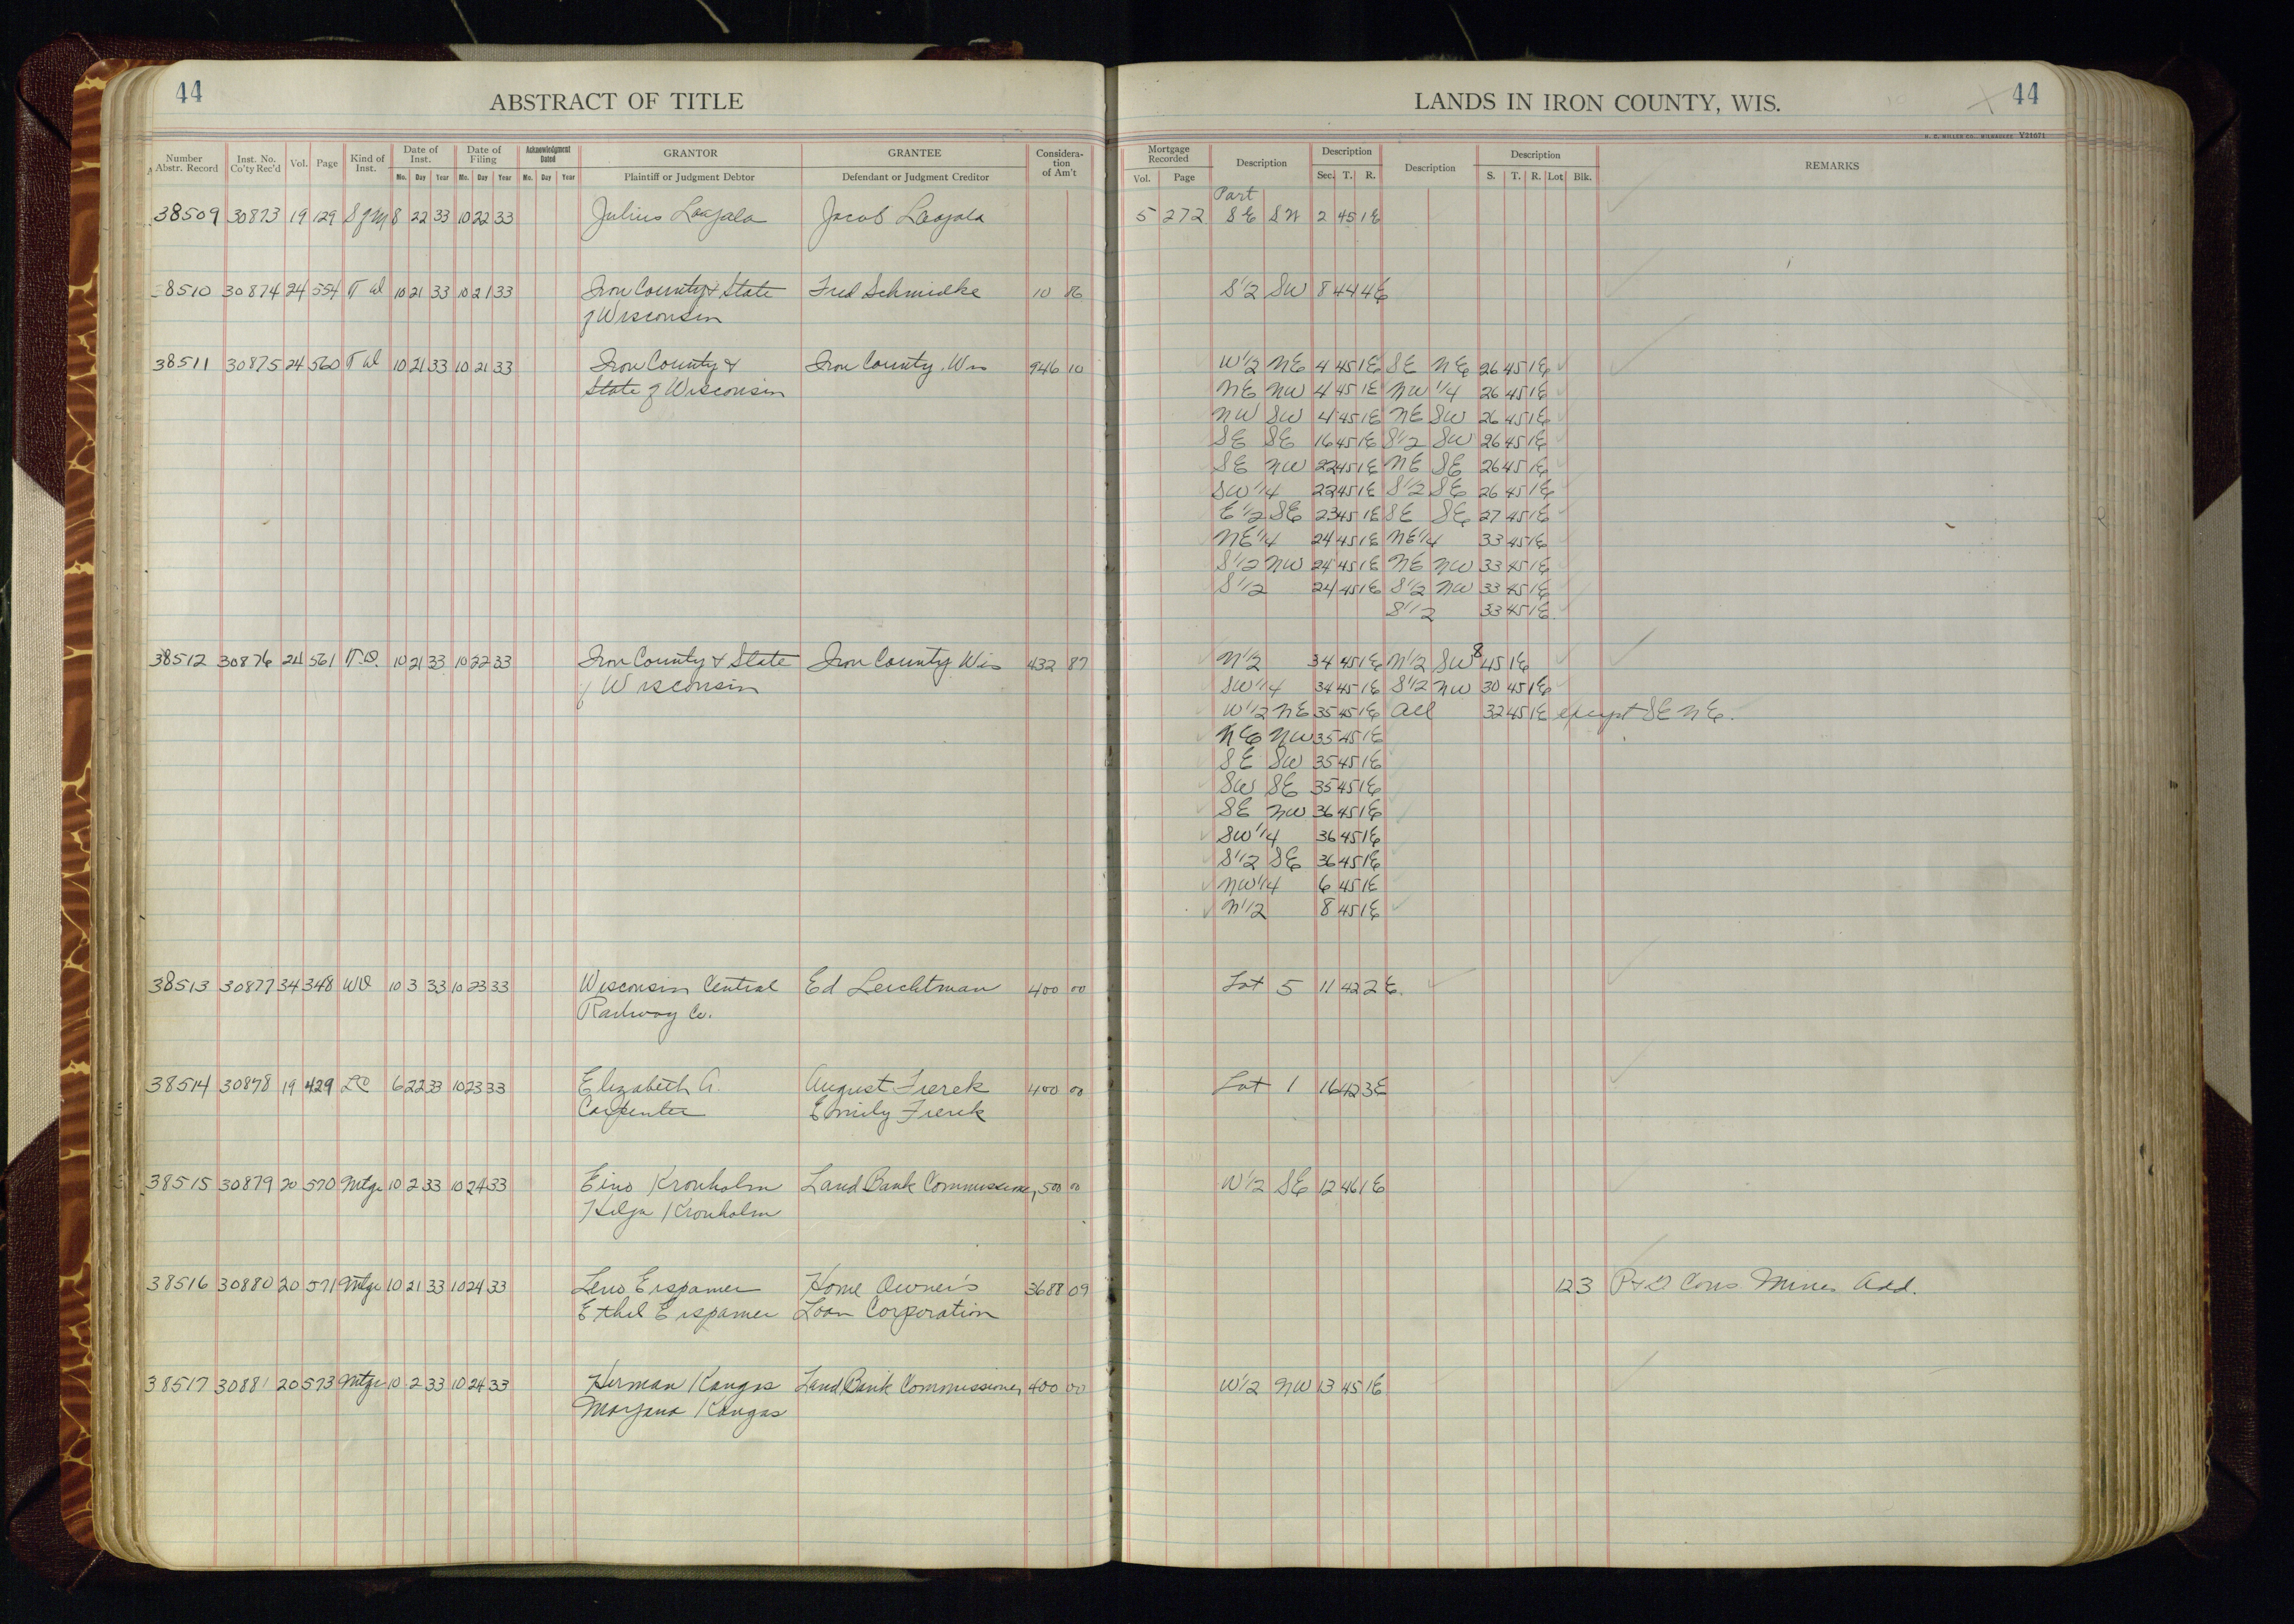 44
ABSTRACT OF TITLE
LANDS IN IRON COUNTY, WIS.
44
H. C. MILLER CO., MILWAUKEE Y21071
Number Abstr. Record Inst. No. Co'ty Rec'd Vol. Page Kind of Inst. Date of Inst. Mo. Day Year Date of Filing Mo. Day Year Acknowledgment Dated Mo. Day Year GRANTOR Plaintiff or Judgment Debtor GRANTEE Defendant or Judgment Creditor Considera-tion of Am't
Mortgage Recorded Vol. Page Description Description Sec. T. R. Description Description S. T. R. Lot Blk. REMARKS
Part
38509 30873 19 129 8 22 33 10 22 33 Julius Laajala Jacob Laajala 5 272 SE SW 2 45 1E
38510 30874 24 554 TD 10 21 33 10 21 33 Iron County & State Fred Schmidke 10 16 S1/2 SW 8 44 4E
of Wisconsin
38511 30875 24 560 TD 10 21 33 10 21 33 Iron County & Iron County, Wis 946 10 W1/2 NE 4 45 1E SE NE 26 45 1E
State of Wisconsin NE NW 4 45 1E NW 1/4 26 45 1E
NW SW 4 45 1E NE SW 26 45 1E
SE SE 16 45 1E S1/2 SW 26 45 1E
SE NW 22 45 1E NE SE 26 45 1E
SW1/4 22 45 1E S1/2 SE 26 45 1E
E1/2 SE 23 45 1E SE SE 27 45 1E
NE1/4 24 45 1E NE1/4 33 45 1E
S1/2 NW 24 45 1E NE NW 33 45 1E
S1/2 24 45 1E S1/2 NW 33 45 1E
S1/2 33 45 1E
38512 30876 24 561 T.D. 10 21 33 10 22 33 Iron County & State Iron County Wis 432 87 N1/2 34 45 1E N1/2 SW 8 45 1E
of Wisconsin SW1/4 34 45 1E S1/2 NW 30 45 1E
W1/2 NE 35 45 1E All 32 45 1E except SE NE.
NE NW 35 45 1E
SE SW 35 45 1E
SW SE 35 45 1E
SE NW 36 45 1E
SW1/4 36 45 1E
S1/2 SE 36 45 1E
NW1/4 6 45 1E
N1/2 8 45 1E
38513 30877 34 348 WD 10 3 33 10 23 33 Wisconsin Central Ed Leichtman 400 00 Lot 5 11 42 2E.
Railway Co.
38514 30878 19 429 LC 6 22 33 10 23 33 Elizabeth A. August Fierek 400 00 Lot 1 16 42 3E
Carpenter Emily Fierek
38515 30879 20 570 Mtge 10 2 33 10 24 33 Eino Kronholm Land Bank Commissioner 500 00 W1/2 SE 12 46 1E
Hilja Kronholm
38516 30880 20 571 Mtge 10 21 33 10 24 33 Leno Erspamer Home Owner's 3688 09 12 3 Cons Mines Add.
Ethel Erspamer Loan Corporation
38517 30881 20 573 Mtge 10 2 33 10 24 33 Herman Kangas Land Bank Commissioner 400 00 W1/2 NW 13 45 1E
Maryana Kangas